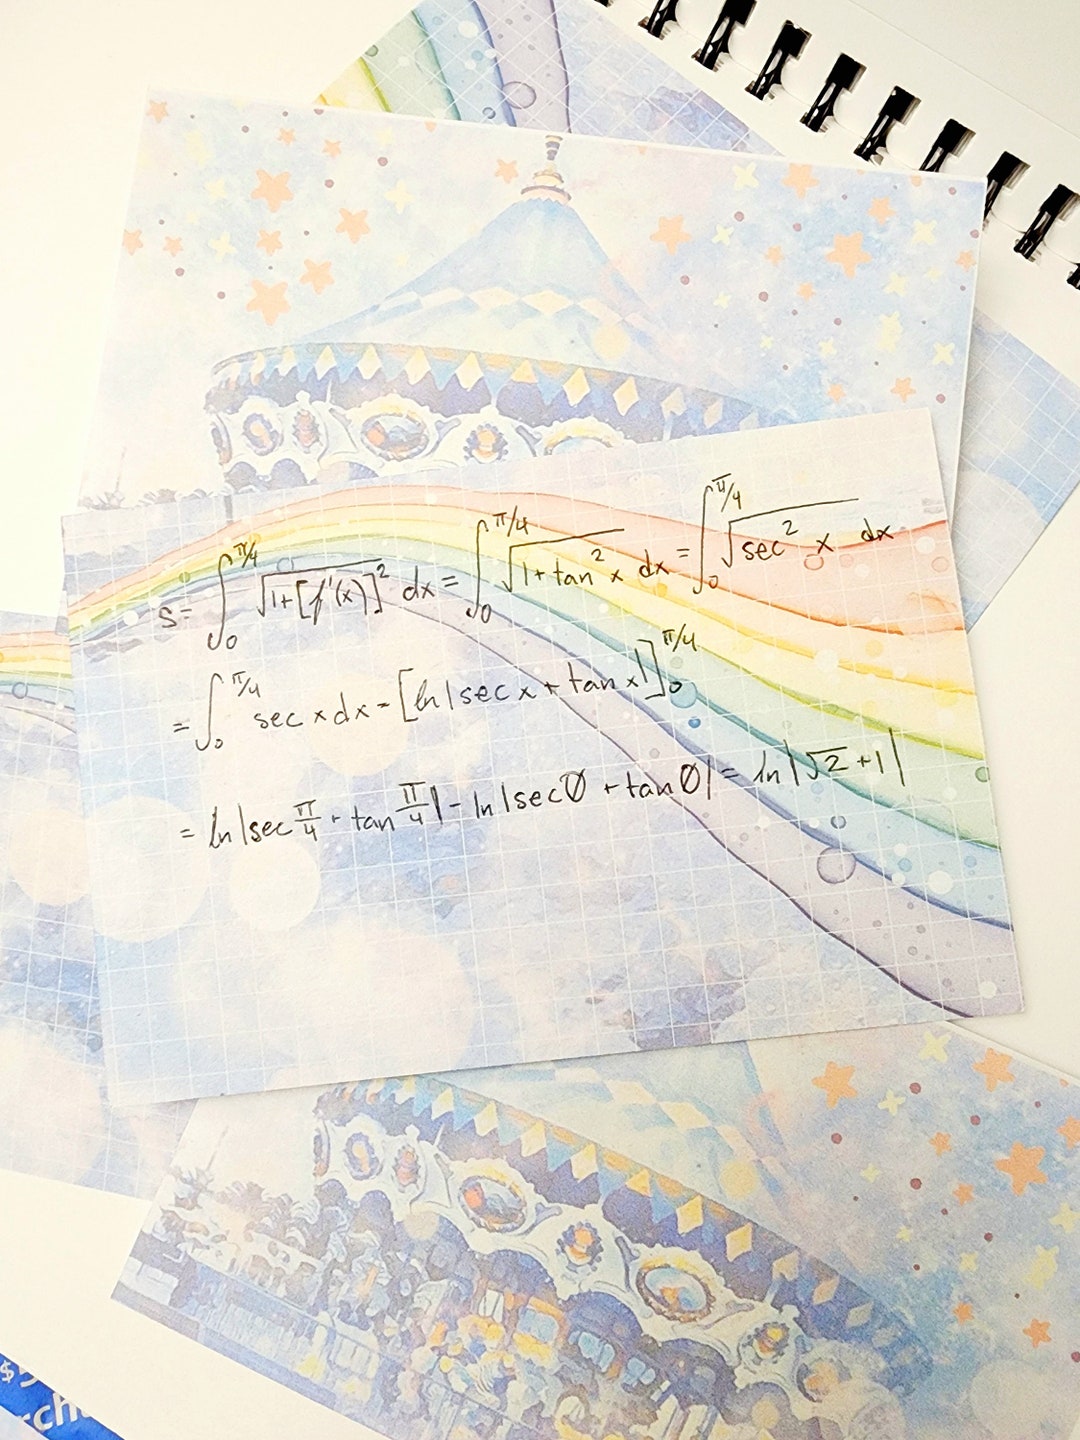 S = ∫₀^π/4 √1+[f'(x)]² dx = ∫₀^π/4 √1+tan² x dx = ∫₀^π/4 √sec² x dx
= ∫₀^π/4 sec x dx = [ln|sec x + tan x|]₀^π/4
= ln|sec π/4 + tan π/4| - ln|sec 0 + tan 0| = ln|√2 + 1|
$